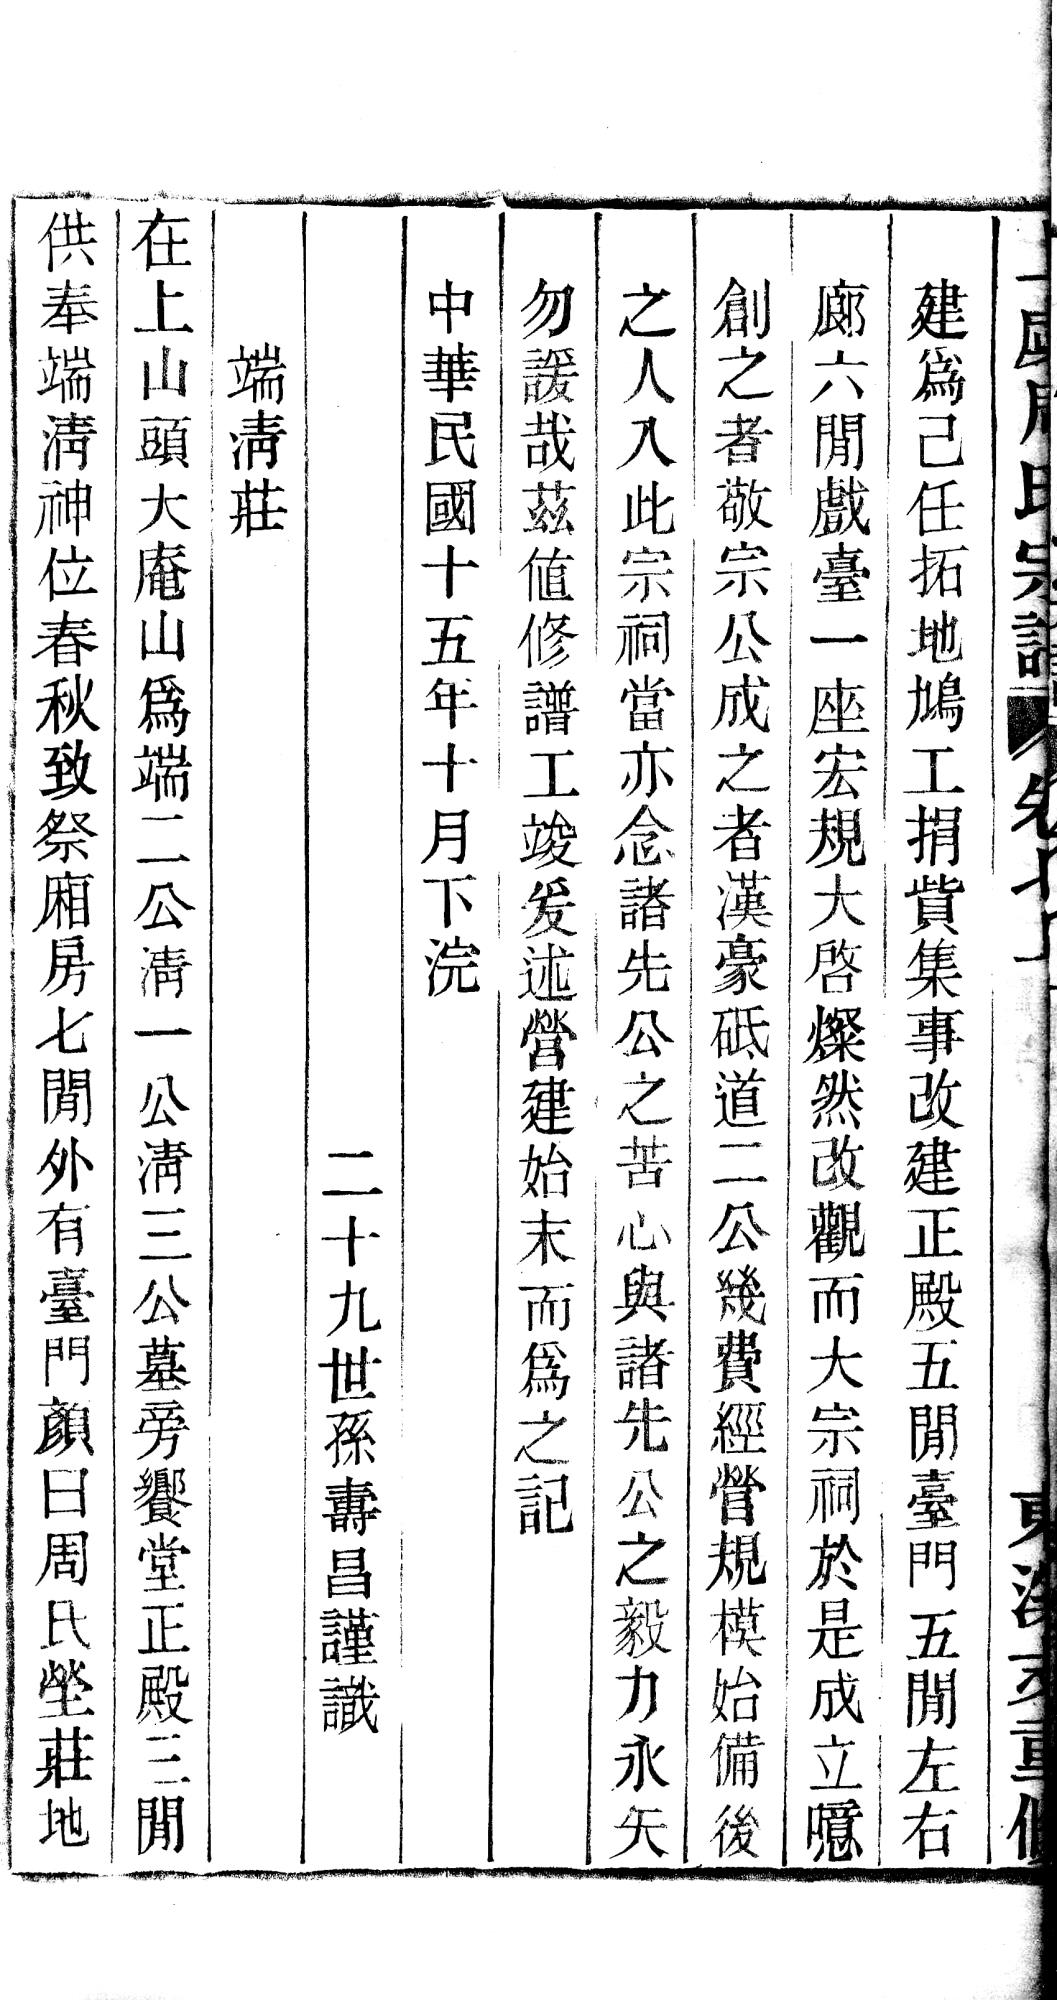 建爲己任拓地鳩工捐貲集事改建正殿五閒臺門五閒左右
廊六閒戲臺一座宏規大啓燦然改觀而大宗祠於是成立噫
創之者敬宗公成之者漢豪砥道二公幾費經營規模始備後
之人入此宗祠當亦念諸先公之苦心與諸先公之毅力永矢
勿諼哉茲値修譜工竣爰述營建始末而爲之記
中華民國十五年十月下浣
二十九世孫壽昌謹識
端淸莊
在上山頭大庵山爲端二公淸一公淸三公墓旁饗堂正殿三閒
供奉端淸神位春秋致祭廂房七閒外有臺門顏曰周氏塋莊地